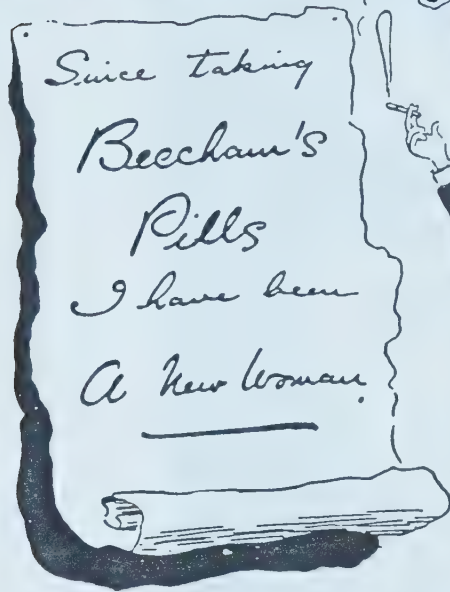 Since taking
Beecham's
Pills
I have been
A New Woman.